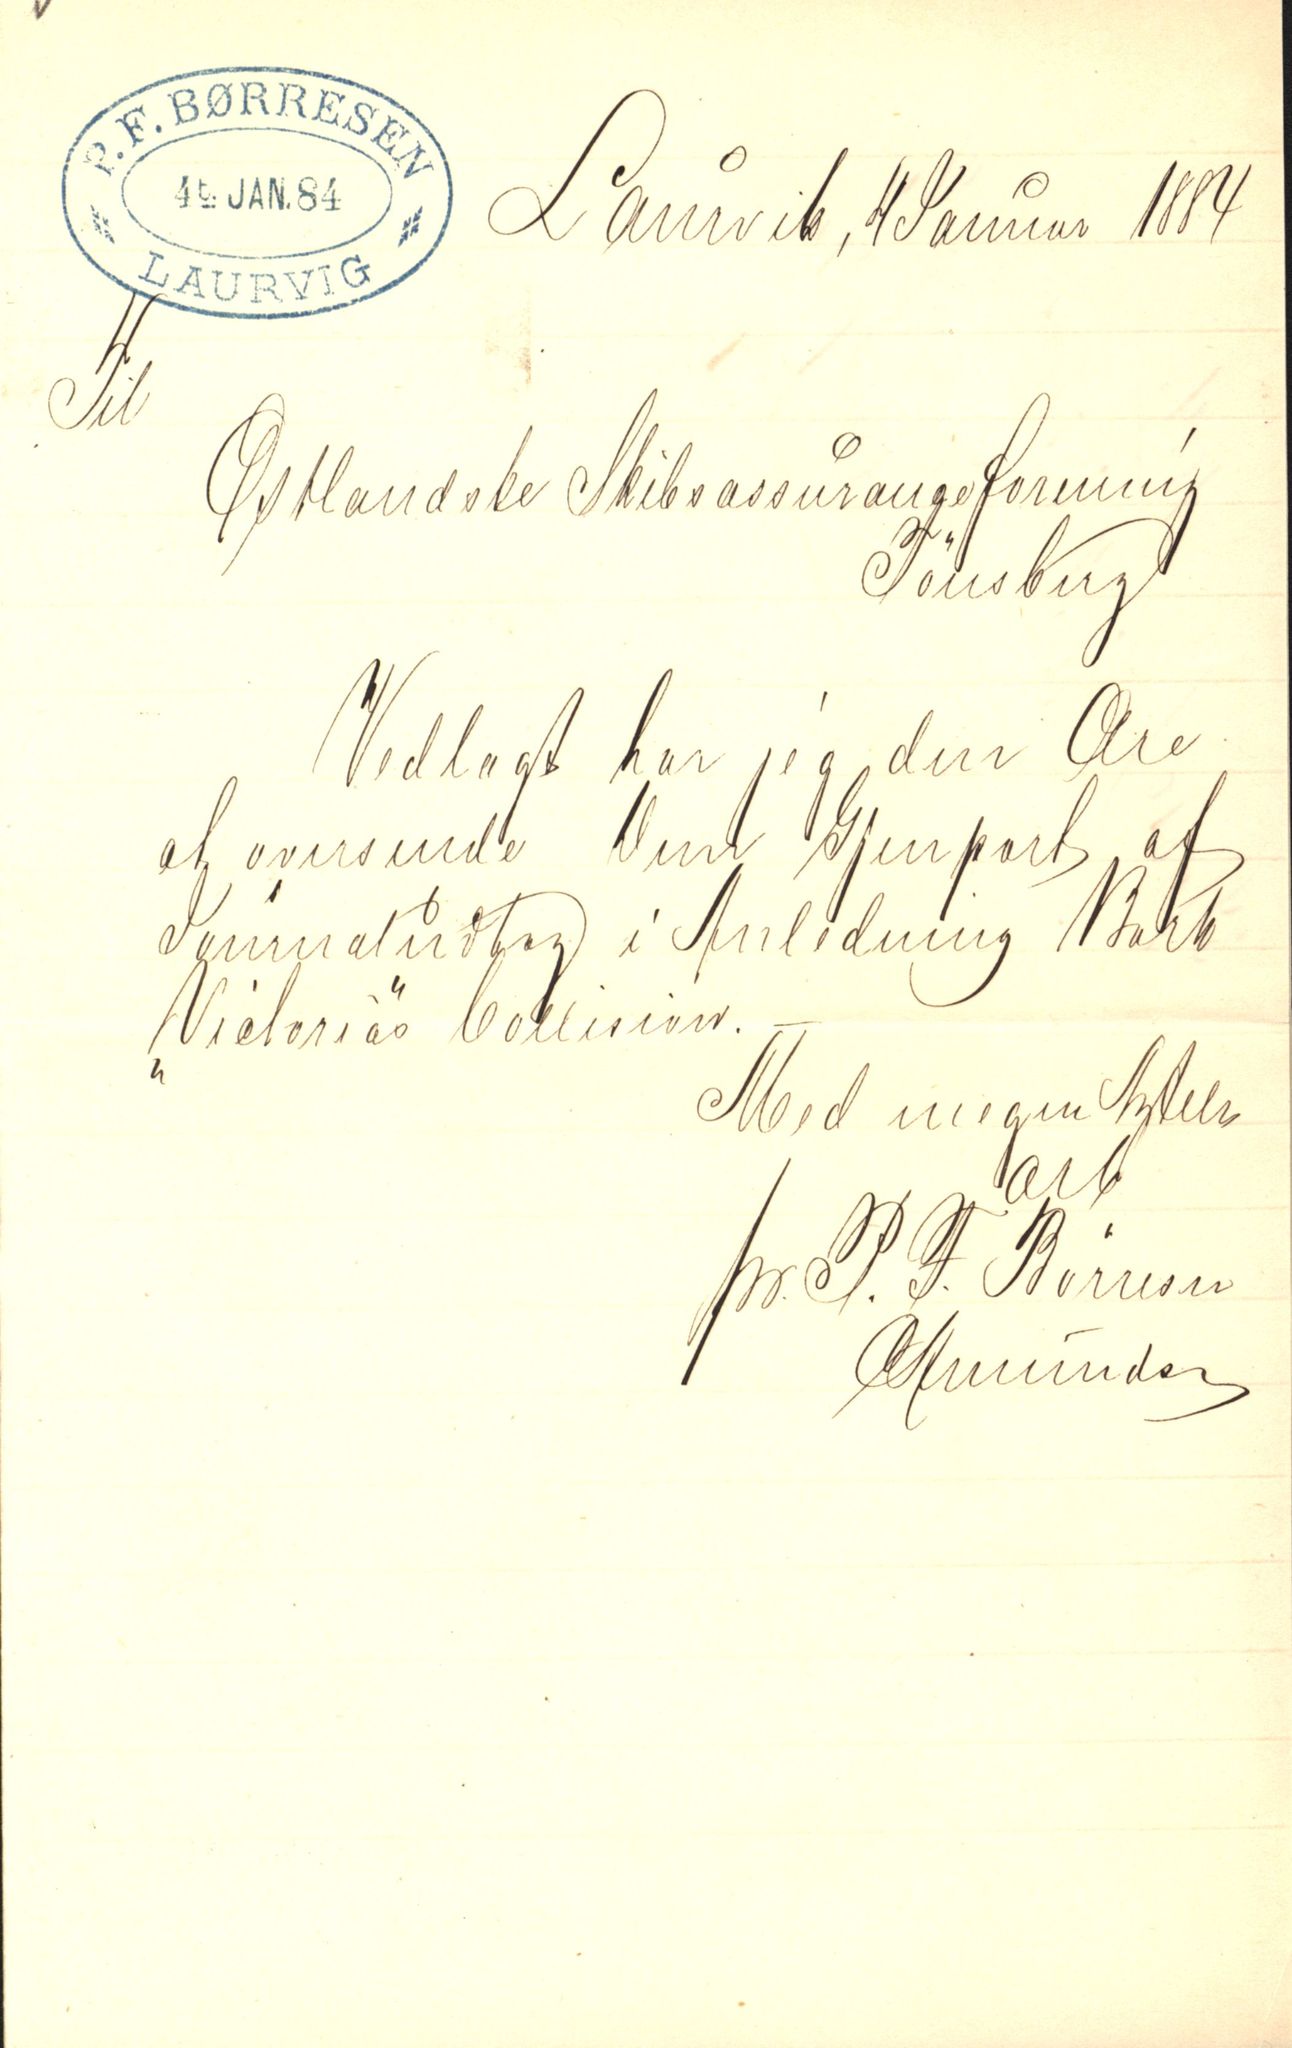 P. F. BØRRESEN
4 JAN. 84
LAURVIG
Laurvik, 4 Januar 1884
Til
Østlandske Skibsassuranceforening
Tönsberg
Vedlagt har jeg den Ære
at oversende Dem Gjenpart af
Journaludtog i Anledning Bark
"Victorias" Collision. —
Med megen Agtelse
ærb
pr. P. F. Börresen
Amundsen